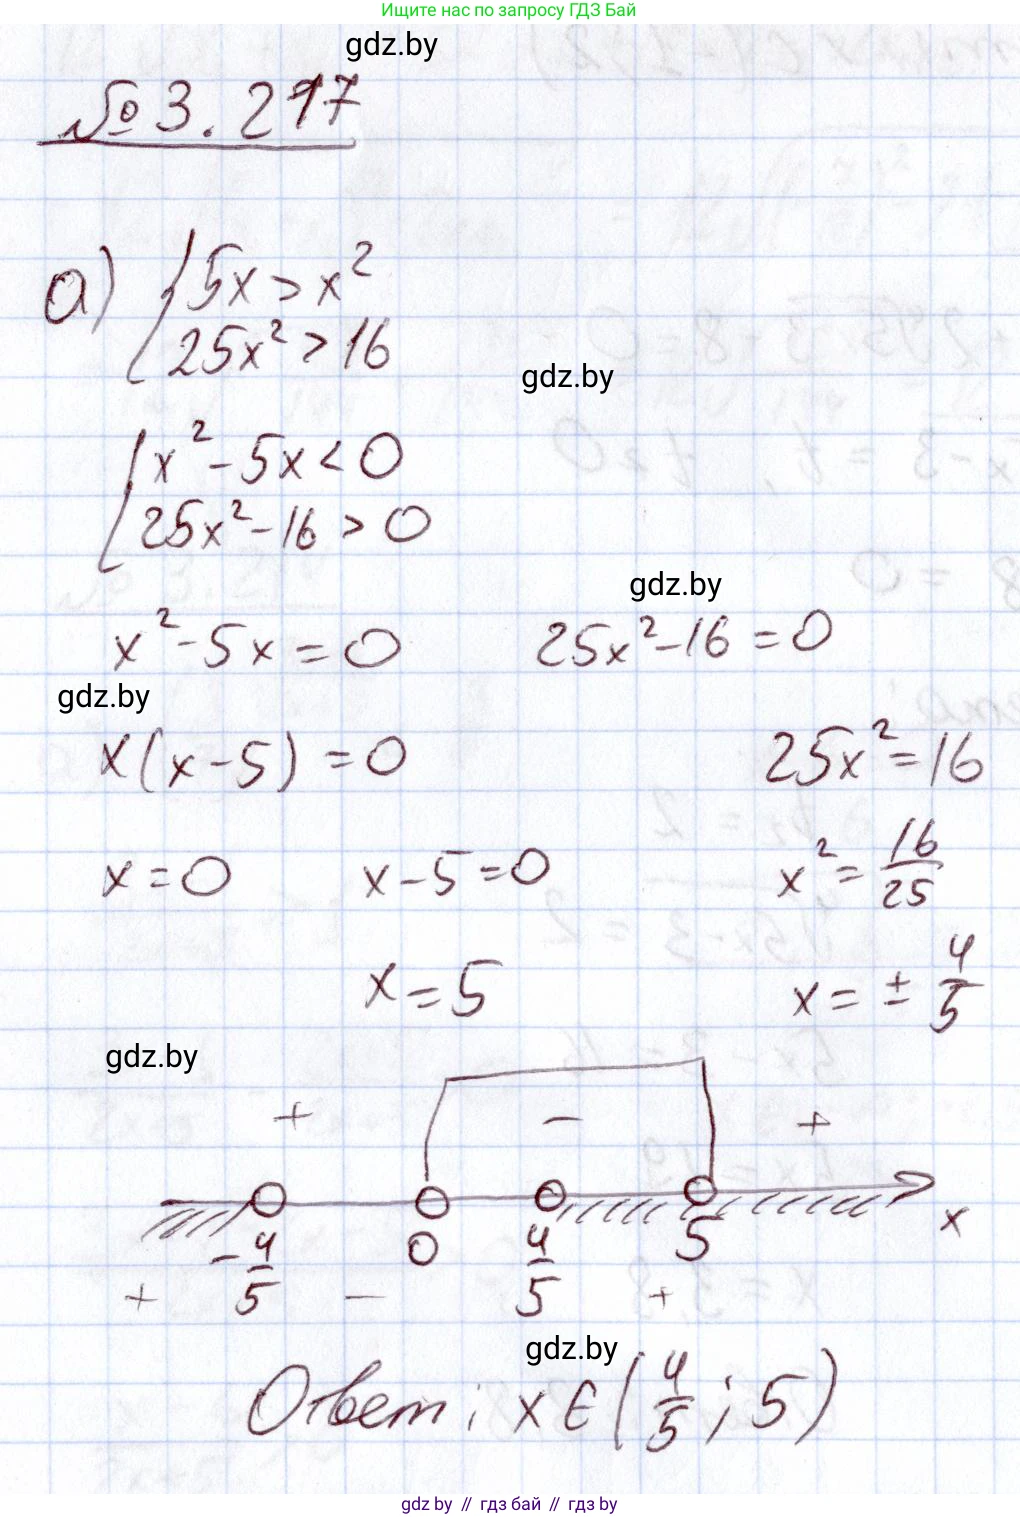 Ищите нас по запросу ГДЗ Бай
gdz.by
№ 3.217
а) { 5x > x²
25x² > 16
gdz.by
{ x² - 5x < 0
25x² - 16 > 0
gdz.by
x² - 5x = 0 25x² - 16 = 0
gdz.by
x(x - 5) = 0 25x² = 16
x = 0 x - 5 = 0 x² = 16/25
x = 5 x = ± 4/5
gdz.by
+ - +
-4/5 0 4/5 5 x
+ - +
gdz.by
Ответ: x ∈ (4/5; 5)
gdz by // гдз бай // gdz by